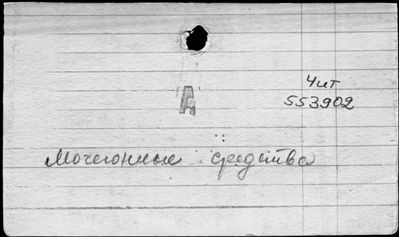 Чит
553902
А
Мочегонные средства